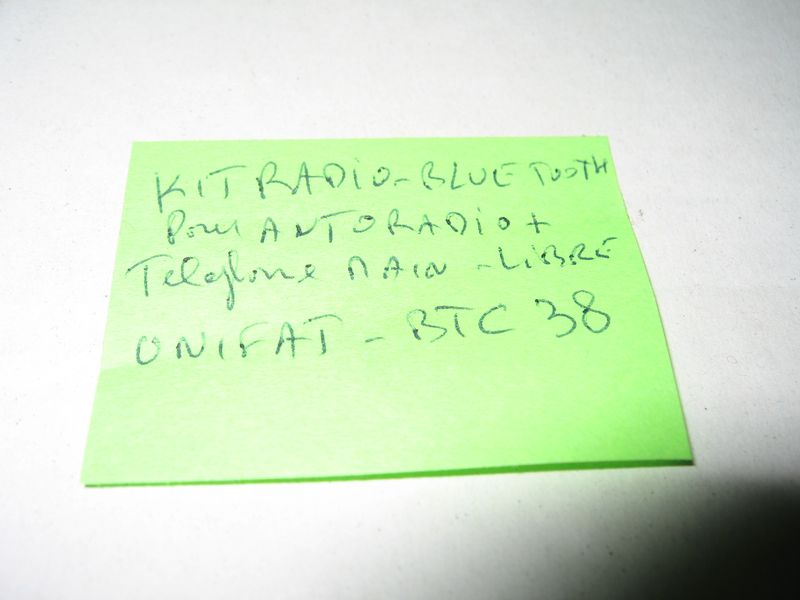 KIT RADIO-BLUE TOOTH
Pour AUTORADIO +
Telephone MAIN-LIBRE
UNIFAT - BTC 38